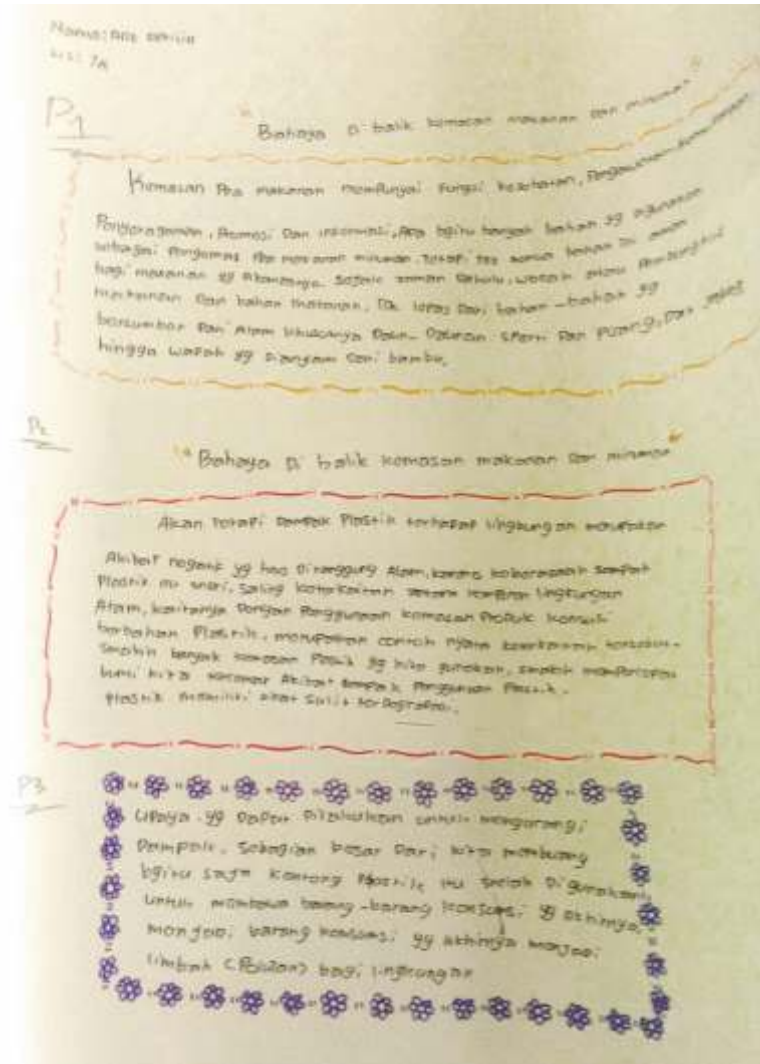 Nama:
Kls: 7A
P1
"Bahaya Di balik kemasan makanan Dan minuman"
Kemasan Pda makanan mempunyai Fungsi kesehatan, Pengawetan, kemudahan
Penyeragaman, Promosi Dan informasi, Ada bgitu banyak bahan yg Digunakan
sebagai Pengemas Pda makanan minuman, tetapi tdk semua bahan ini aman
bagi makanan yg Dikemasnya. Sejak zaman Dahulu, wadah atau Pembungkus
makanan Dan bahan makanan, tdk lepas Dari bahan-bahan yg
bersumber Dari Alam khususnya Daun-Daunan sperti Dan Pisang, Dan jagung
hingga wadah yg Dianyam Dari bambu.
P2
"Bahaya Di balik kemasan makanan Dan minuman"
Akan tetapi Dampak Plastik terhadap lingkungan merupakan
Akibat negatif yg hrs Ditanggung Alam, karena keberadaan sampah
Plastik itu sndri, Saling keterkaitan antara lingkungan
Alam, kaitanya Dengan Penggunaan kemasan Produk konsumsi
berbahan Plastik, merupakan contoh nyata keterkaitan tersebut.
Smakin banyak kemasan Plastik yg kita gunakan, smakin
bumi kita Akibat Dampak Penggunaan Plastik.
Plastik memiliki sifat Sulit terDegradasi.
P3
Upaya yg Dapat Dilakukan untuk mengurangi
Dampak, Sebagian besar Dari kita membuang
bgitu saja kantong Plastik itu stelah Digunakan
untuk membawa barang-barang konsumsi yg akhirnya
menjadi barang konsumsi yg akhirnya menjadi
limbah (Polutan) bagi lingkungan